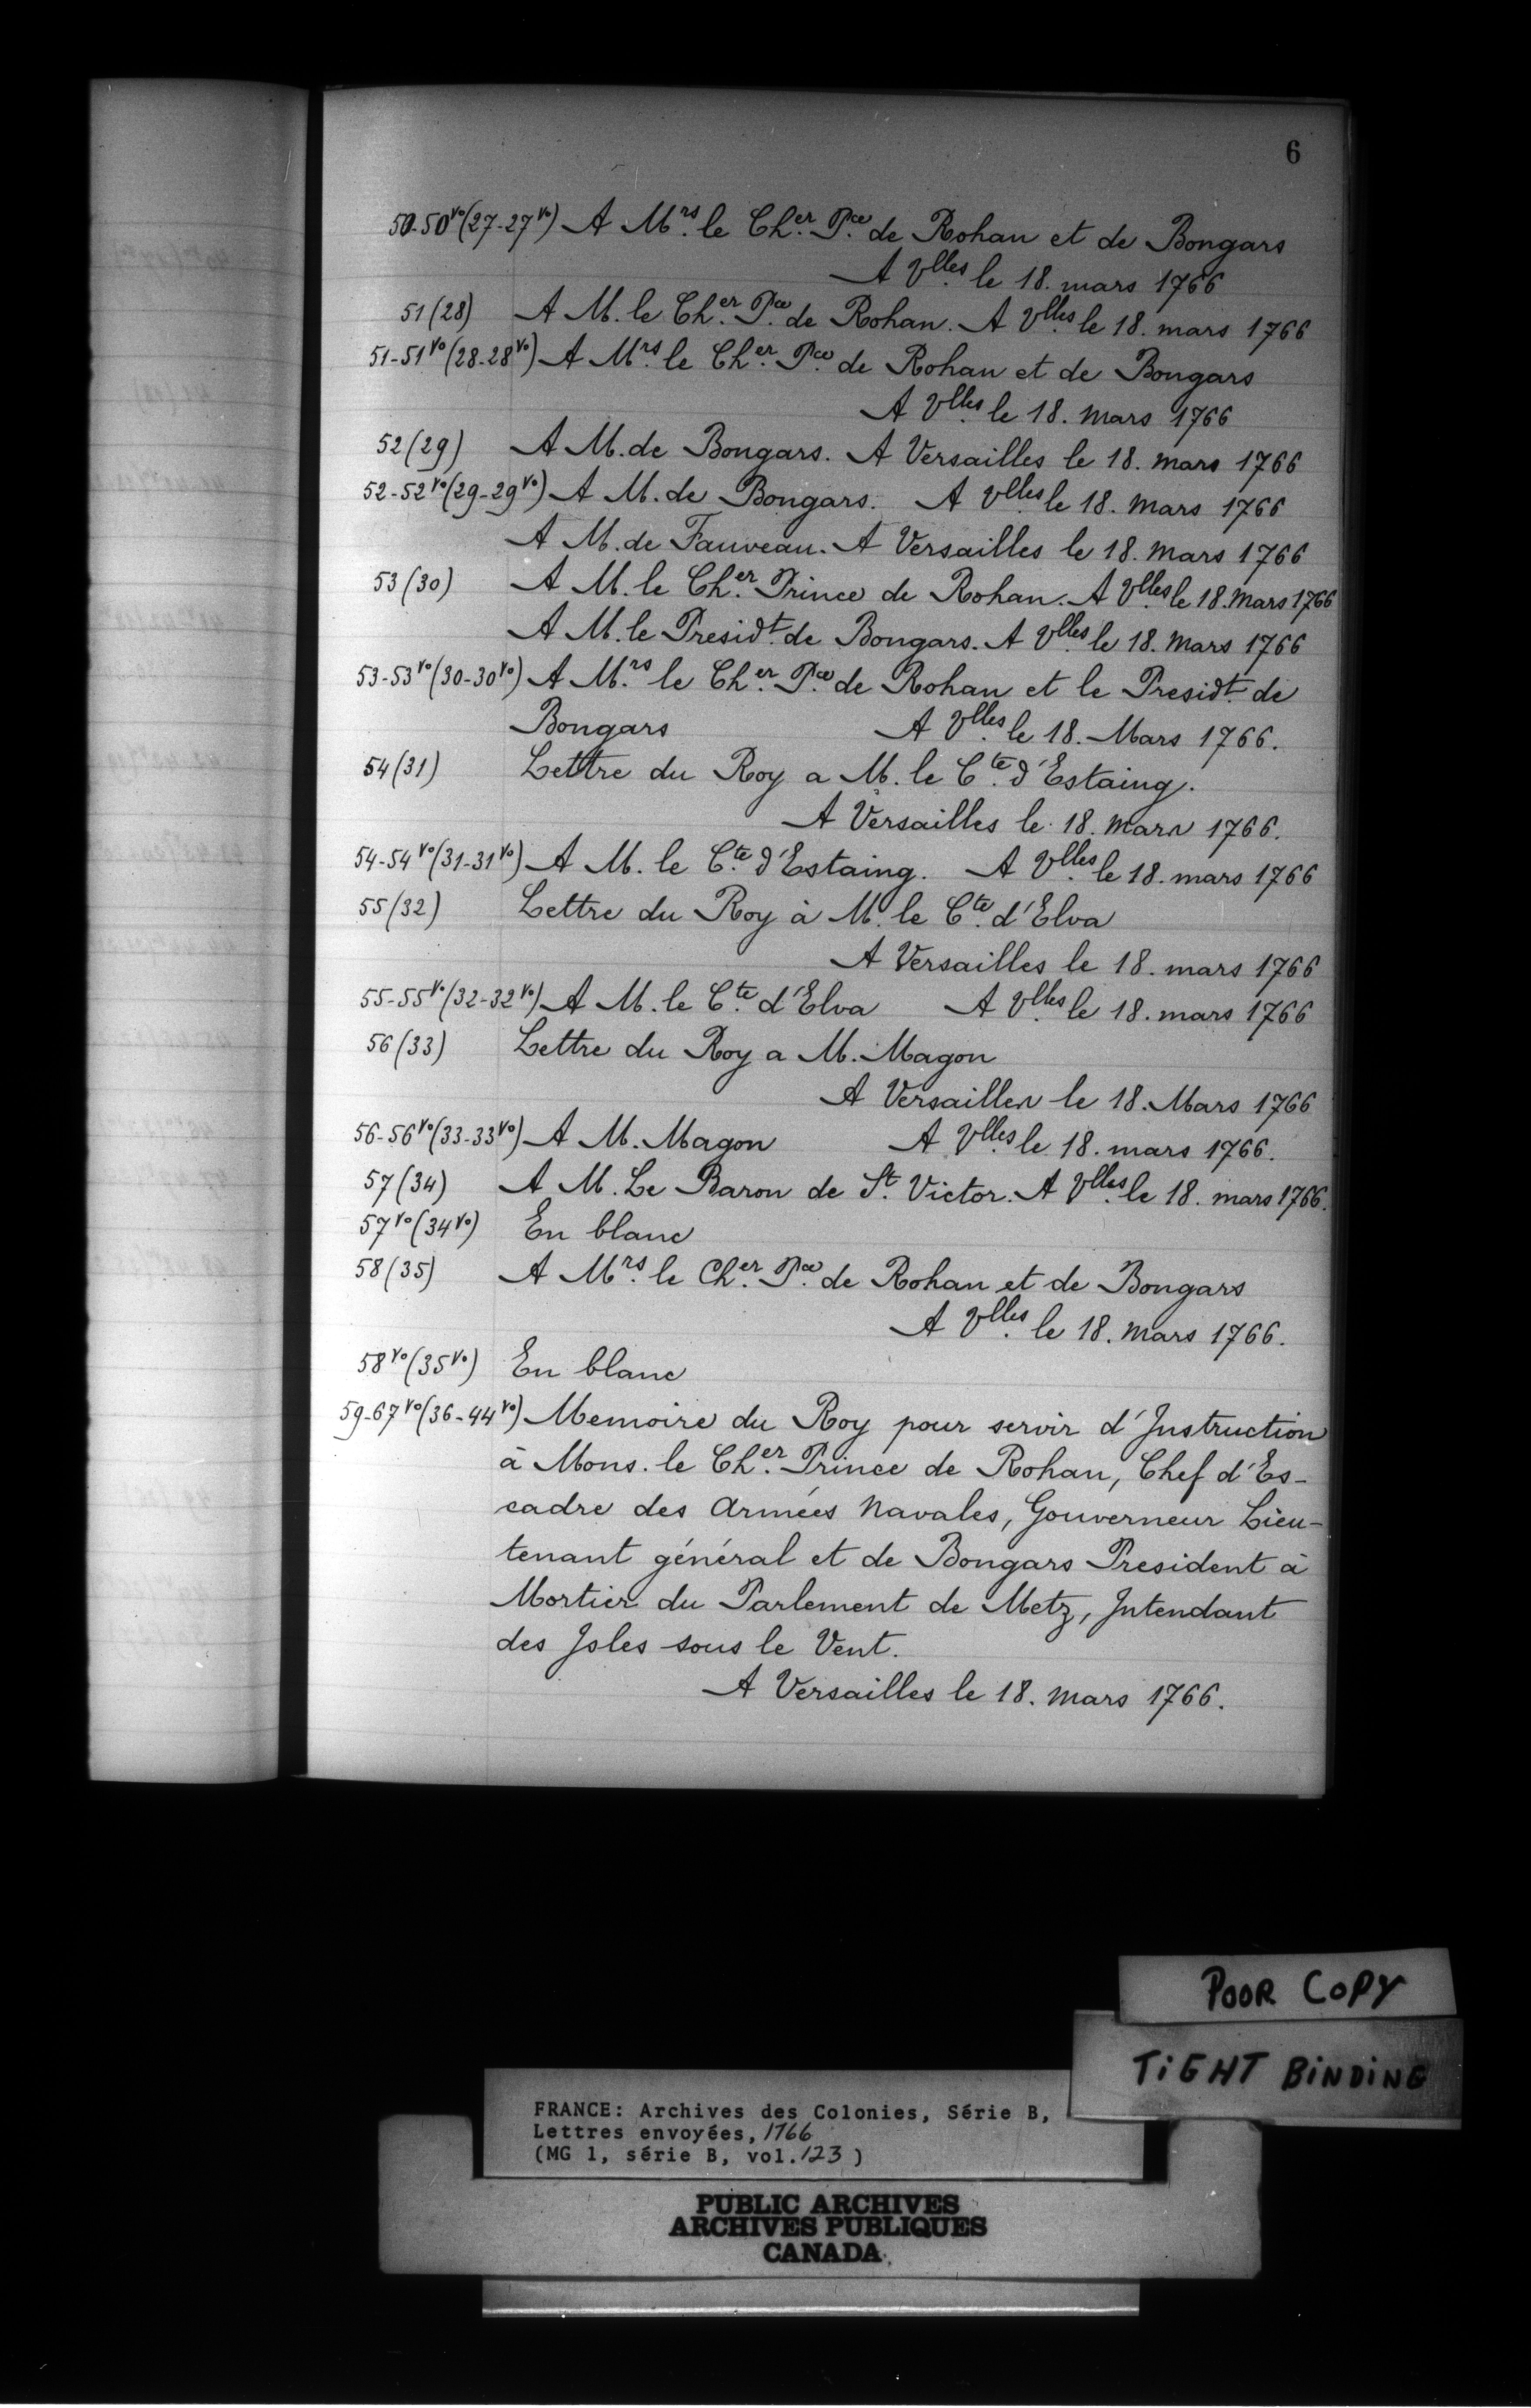 6
50-50vo(27-27vo) A Mrs. le Cher. Pce. de Rohan et de Bongars
A Vlles. le 18. mars 1766
51(28) A M. le Cher. Pce. de Rohan. A Vlles. le 18. mars 1766
51-51vo(28-28vo) A Mrs. le Cher. Pce. de Rohan et de Bongars
A Vlles. le 18. mars 1766
52(29) A M. de Bongars. A Versailles le 18. mars 1766
52-52vo(29-29vo) A M. de Bongars. A Vlles. le 18. mars 1766
A M. de Fauveau. A Versailles le 18. mars 1766
53(30) A M. le Cher. Prince de Rohan. A Vlles. le 18. mars 1766
A M. le Presidt. de Bongars. A Vlles. le 18. mars 1766
53-53vo(30-30vo) A Mrs. le Cher. Pce. de Rohan et le Presidt. de
Bongars A Vlles. le 18. Mars 1766.
54(31) Lettre du Roy a M. le Cte. d'Estaing.
A Versailles le 18. mars 1766.
54-54vo(31-31vo) A M. le Cte. d'Estaing. A Vlles. le 18. mars 1766
55(32) Lettre du Roy à M. le Cte. d'Elva
A Versailles le 18. mars 1766
55-55vo(32-32vo) A M. le Cte. d'Elva A Vlles. le 18. mars 1766
56(33) Lettre du Roy a M. Magon
A Versailles le 18. Mars 1766
56-56vo(33-33vo) A M. Magon A Vlles. le 18. mars 1766.
57(34) A M. Le Baron de St. Victor. A Vlles. le 18. mars 1766.
57vo(34vo) En blanc
58(35) A Mrs. le Cher. Pce. de Rohan et de Bongars
A Vlles. le 18. mars 1766.
58vo(35vo) En blanc
59-67vo(36-44vo) Memoire du Roy pour servir d'Instruction
à Mons. le Cher. Prince de Rohan, Chef d'Es-
cadre des Armées Navales, Gouverneur Lieu-
tenant général et de Bongars President à
Mortier du Parlement de Metz, Intendant
des Isles sous le Vent.
A Versailles le 18. mars 1766.
POOR COPY
TIGHT BINDING
FRANCE: Archives des Colonies, Série B,
Lettres envoyées, 1766
(MG 1, série B, vol. 123 )
PUBLIC ARCHIVES
ARCHIVES PUBLIQUES
CANADA